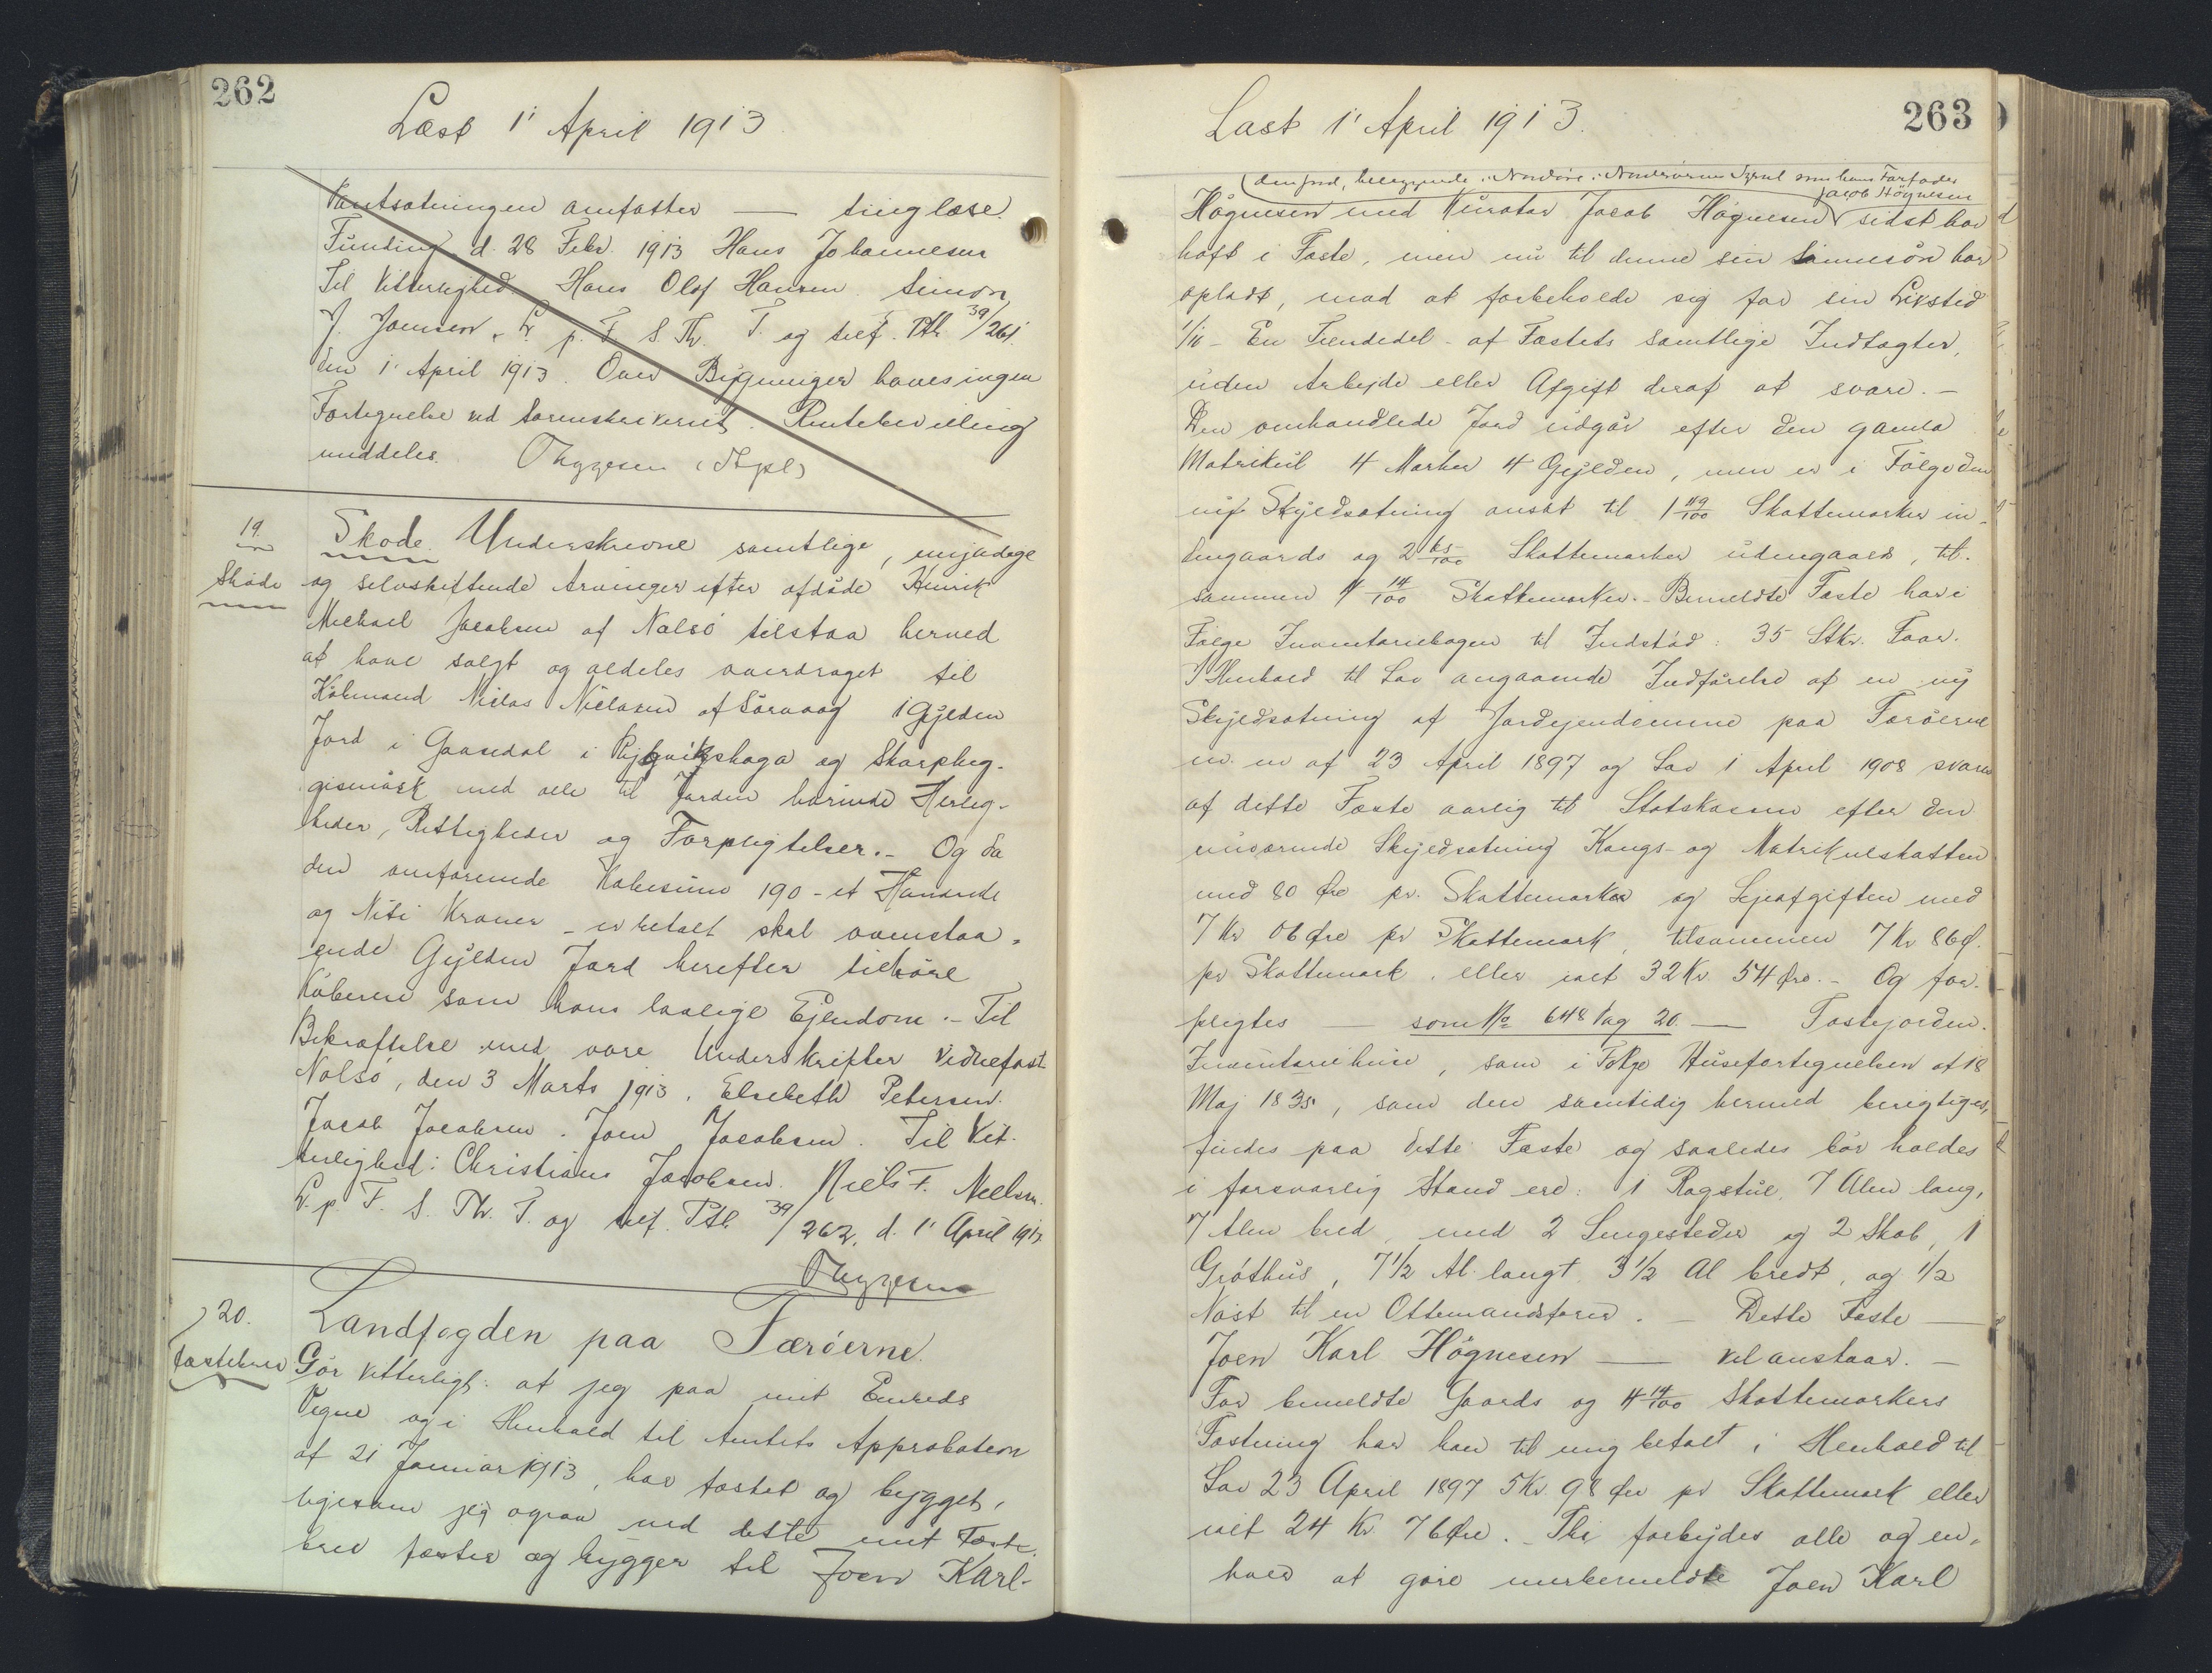 262
Læst 1' April 1913
Pantsætningen omfatter — tinglæse.
Funding d. 28 Febr. 1913 Hans Johannesen
Til Vitterlighed Hans Olof Hansen Simon
J. Joensen. L. p. F. S. Th. T. og tilf. Ptb. 39/261.
den 1' April 1913. Over Bygninger haves ingen
Fortegnelse ved Sorenskriveriet. Rentebevilling
meddeles. Thygesen (Kpl)
19.
Skøde
Skøde. Underskrevne samtlige, myndige
og selvskiftende Arvinger efter afdøde Henrik
Michael Jacobsen af Nolsø tilstaa herved
at have solgt og aldeles overdraget til
Købmand Niclas Nielsen af Sørvaag 1 Gylden
Jord i Gaasedal i Rygvigshaga og Skarpheg-
gismørk med alle til Jorden hørende Herlig-
heder, Rettigheder og Forpligtelser. - Og da
den omførende Købesum 190 - et Hundrede
og Niti Kroner - er betalt skal ovenstaa-
ende Gylden Jord herefter tilhøre
Køberen som hans lovlige Ejendom. - Til
Bekræftelse med vore Underskrifter vidnefast
Nolsø, den 3 Marts 1913. Elsebeth Petersen.
Jacob Jacobsen. Joen Jacobsen. Til Vit-
terlighed: Christians Jacobsen. Niels F. Nielsen.
L. p. F. S. Th. T. og tilf. Ptb. 39/262. d. 1' April 1913.
Thygesen
20.
Fæstebrev
Landfogden paa Færøerne.
Gør vitterligt: at jeg paa mit Embeds
Vegne og i Henhold til Amtets Approbation
af 21 Januar 1913, har fæstet og bygget,
ligesom jeg ogsaa ved dette mit Fæste-
brev fæster og bygger til Joen Karl-
263
Læst 1' April 1913.
den Jord, beliggende i Nordøre i Norderøernes Syssel som hans Farfader
Jacob Høgnesen
Høgnesen med Kurator Jacob Høgnesen sidst har
haft i Fæste, men nu til denne sin Sønnesøn har
opladt, mod at forbeholde sig for sin Livstid
1/10 - En Tiendedel - af Fæstets samtlige Indtægter,
uden Arbejde eller Afgift deraf at svare. -
Den omhandlede Jord udgør efter den gamle
Matrikul 4 Marker 4 Gylden, men er i Følge den
ny Skyldsætning ansat til 1 49/100 Skattemarker in-
dengaards og 2 65/100 Skattemarker udengaards, til-
sammen 4 14/100 Skattemarker. - Bemeldte Fæste har i
Følge Inventariebogen til Indstød: 35 Stkr. Faar.
I Henhold til Lov angaaende Indførelse af en ny
Skyldsætning af Jordejendomme paa Færøerne
m. m. af 23 April 1897 og Lov 1 April 1908 svares
af dette Fæste aarlig til Statskassen efter den
nuværende Skyldsætning Kongs- og Matrikulskatten
med 80 Øre pr. Skattemarker og Lejeafgiften med
7 Kr 06 Øre pr Skattemark, tilsammen 7 Kr 86 Ø.
pr Skattemark. eller ialt 32 Kr 54 Øre. - Og for-
pligtes — som No 648 Pag 20 — Fæstejorden.
Inventariehuse, som i Følge Husefortegnelsen af 18
Maj 1835, som den samtidig hermed berigtiges,
findes paa dette Fæste og saaledes bør holdes
i forsvarlig Stand ere: 1 Røgstue, 7 Alen lang,
7 Alen bred, med 2 Sengesteder og 2 Skab, 1
Grøthus, 7 1/2 Al. langt 3 1/2 Al bredt, og 1/2
Nøst til en Ottemandsfarer. - Dette Fæste —
Joen Karl Høgnesen — vel anstaar. -
For bemeldte Gaards og 4 14/100 Skattemarkers
Fæstning har han til mig betalt i Henhold til
Lov 23 April 1897 5 Kr. 98 Øre pr Skattemark eller
ialt 24 Kr 76 Øre. - Thi forbydes alle og en-
hver at gøre merbemeldte Joen Karl